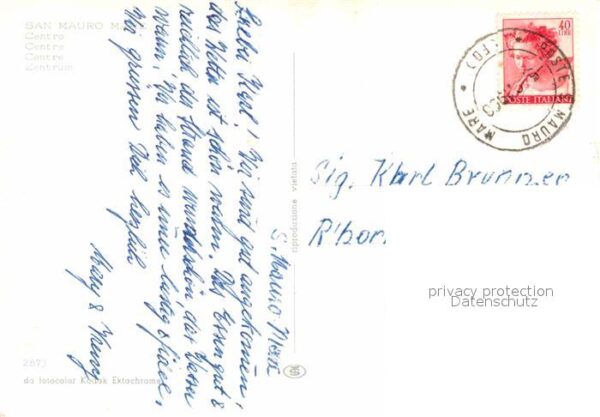 SAN MAURO MA
Centro
Centre
Centre
Zentrum
S. Mauro-Mare
Liebe Karl! Wir sind gut angekommen,
das Wetter ist schön warm. Das Essen gut &
reichlich der Strand wunderschön, das Wasser
warm, Wir haben es immer lustig & fidel,
Wir grüssen Dich herzlich
2673
da fotocolor Kodak Ektachrome
riproduzione vietata
40
LIRE
POSTE ITALIANE
POSTE S. MAURO MARE * (FO) *
Sig. Karl Brunner
Ribon
privacy protection
Datenschutz